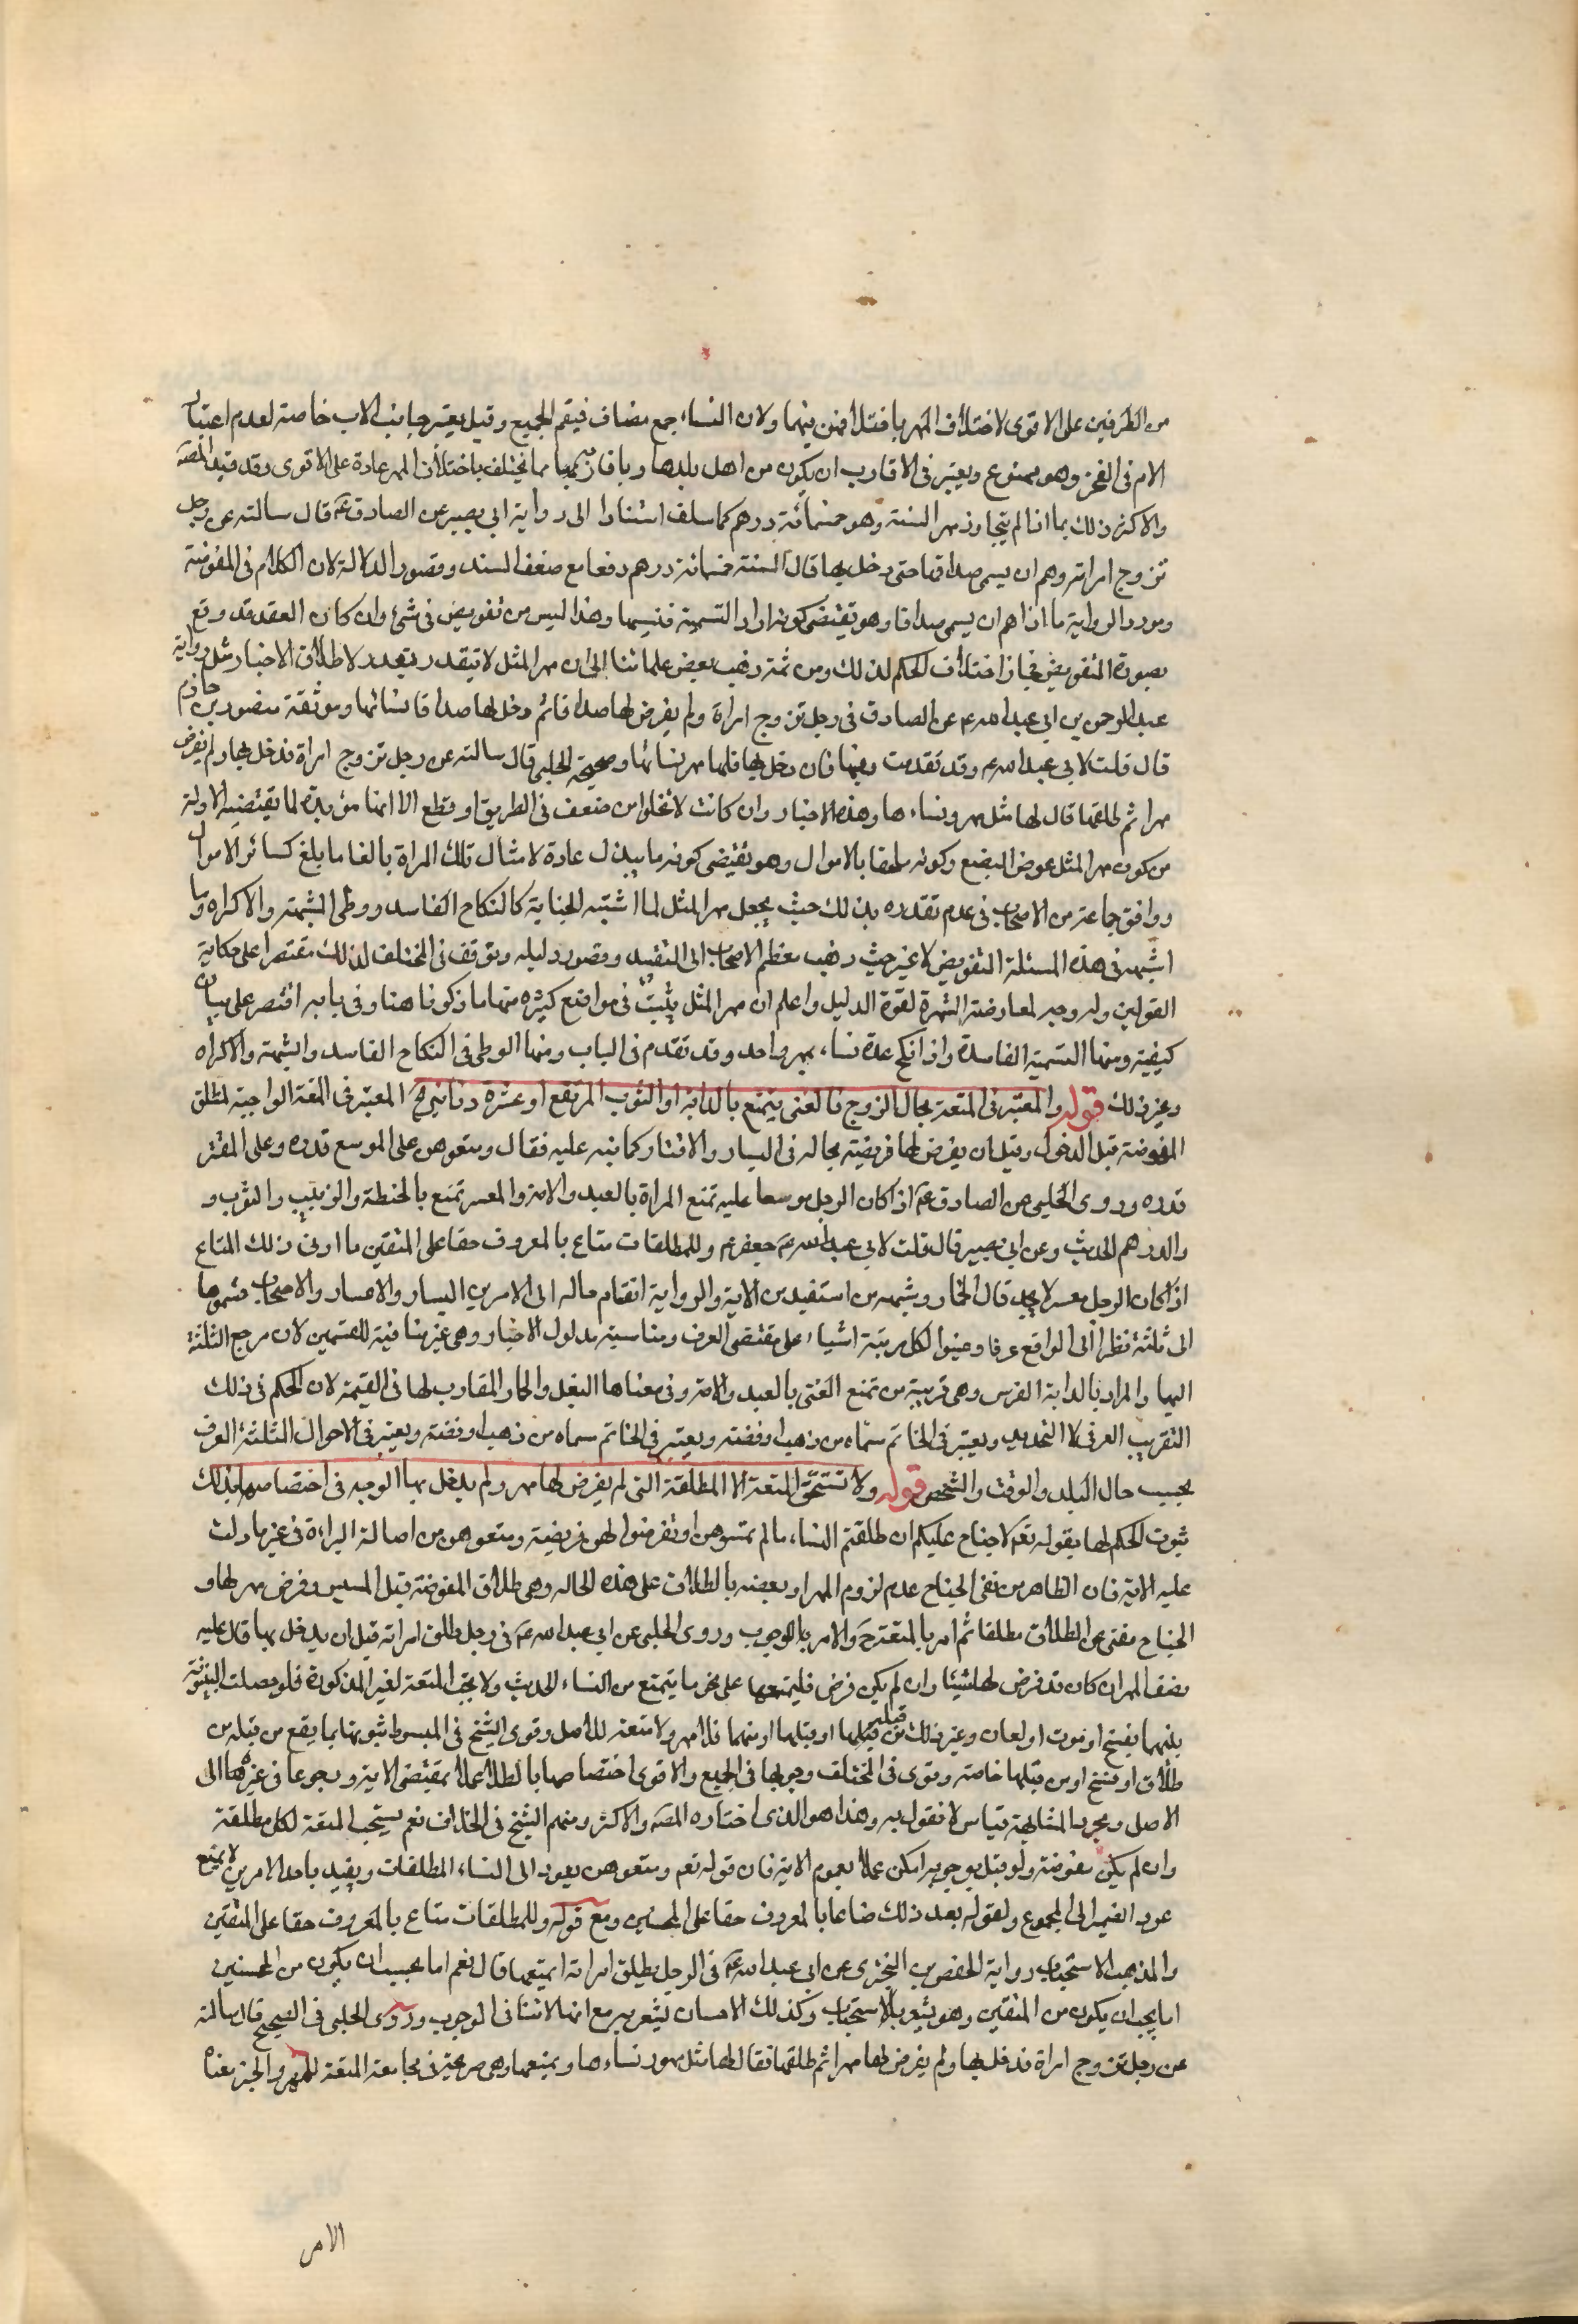 من الطرفين على الاقوى لاختلاف المهر باختلافهن فيهما ولان النساء جمع مضاف فيعم الجميع وقيل يعتبر جانب الاب خاصة لعدم اعتبار
الام فى الفخر وهو ممنوع ويعتبر فى الاقارب ان يكون من اهل بلدها مما يختلف باختلاف المهر عادة على الاقوى وقد قيد المصنف
والاكثر ذلك بما اذا لم يتجاوز مهر السنة وهو خمسمائة درهم كما سلف استنادا الى رواية ابى بصير عن الصادق ع قال سالته عن رجل
تزوج امراته وهم ان يسمى صداقها حتى دخل بها قال السنة خمسمائة درهم دفعا مع ضعف السند وقصور الدلالة لان الكلام فى المفوضة
ومورد الرواية ما اذا هم ان يسمى صداقا وهو يقتضى كونه اراد التسمية فنسيها وهذا ليس من تفويض فى شئ وان كان العقد قد وقع
بصورة التفويض فجاز اختلاف الحكم لذلك ومن ثمة ذهب بعض علمائنا الى ان مهر المثل لا يتقدر بقدر لاطلاق الاخبار مثل رواية
عبد الرحمن بن ابى عبد الله عن الصادق فى رجل تزوج امراة ولم يفرض لها صداقا ثم دخل لها صداق نسائها وموثقة منصور بن حازم
قال قلت لابى عبد الله وقد تقدمت وفيها فان دخل بها فلها مهر نسائها وصحيحة الحلبى قال سالته عن رجل تزوج امراة فدخل بها ولم يفرض
مهرا ثم طلقها قال لها مثل مهور نساءها وهذه الاخبار وان كانت لا تخلوا من ضعف فى الطريق او قطع الا انها مؤيدة لما يقتضيه الادلة
من كون مهر المثل عوض البضع وكونه ملحقا بالاموال وهو يقتضى كونه ما يبذل عادة لامثال تلك المراة بالغا ما بلغ كسائر الاموال
ووافق جماعة من الاصحاب فى عدم تقدره بذلك حيث يجعل مهر المثل لما اشتبه الجناية كالنكاح الفاسد ووطى الشبهة والاكراه وما
اشبهه فى هذه المسئلة التفويض لا غير حيث ذهب معظم الاصحاب الى التقييد وقصور دليله وتوقف فى المختلف لذلك مقتصرا على حكاية
القولين وله وجه لمعارضة الشهرة لقوة الدليل واعلم ان مهر المثل يثبت فى مواضع كثيره منها ما ذكر هنا وفى بابه اقتصر على بيان
كيفيته ومنها التسمية الفاسدة واذا نكح عدة نساء بمهر واحد وقد تقدم فى الباب ومنها الوطى فى النكاح الفاسد والشبهة والاكراه
وغير ذلك قوله والمعتبر فى المتعة بحال الزوج فالغنى يتمتع بالدابة او الثوب المرتفع او عشرة دنانير المعتبر فى المتعة الواجبة لمطلق
المفوضة قبل الدخول وقبل ان يفرض لها فريضة بحاله فى اليسار والاقتار كما نبه عليه فقال ومتعوهن على الموسع قدره وعلى المقتر
قدره وروى الحلبى عن الصادق ع اذا كان الرجل موسعا عليه تمتع المراة بالعبد والامة والمعسر تمتع بالحنطة والزبيب والثوب و
والدرهم الحديث وعن ابى بصير قال قلت لابى عبد الله ع جعفر وللمطلقات متاع بالمعروف حقا على المتقين ما ادنى ذلك المتاع
اذا كان الرجل معسر لا يجد قال الخمار وشبهه من استفيد من الاية والرواية انقسام حاله الى الامرين اليسار والاعسار والاصحاب قسموها
الى ثلثة نظرا الى الواقع عرفا وعينوا لكل مرتبة اشياء على مقتضى العرف ومناسبة مدلول الاخبار وهى غير منافية للقسمين لان مرجع الثلثة
اليهما والمراد بالدابة الفرس وهى قريبة من تمتع الغنى بالعبد والامة وفى معناها البغل والحمار المقارب لها فى القيمة لان الحكم فى ذلك
التقريب العرفى لا التحديد ويعتبر فى الخاتم سماه من ذهب او فضة ويعتبر فى الخاتم سماه من ذهب او فضة ويعتبر فى الاحوال الثلثة العرف
بحسب حال البلد والوقت والشخص قوله ولا تستحق المتعة الا المطلقة التى لم يفرض لها مهر ولم يدخل بها الوجه فى اختصاصها بذلك
ثبوت الحكم لها بقوله تعم لا جناح عليكم ان طلقتم النساء ما لم تمسوهن او تفرضوا لهن فريضة ومتعوهن من اصالة البراءة فى غير ما دلت
عليه الاية فان الظاهر من نفى الجناح عدم لزوم المهر او بعضه بالطلاق على هذه الحاله وهى طلاق المفوضة قبل المسيس وفرض مهر لها و
الجناح منفى عن الطلاق مطلقا ثم امر بالمتعة ح والامر بالوجوب وروى الحلبى عن ابى عبد الله ع فى رجل طلق امراته قبل ان يدخل بها قال عليه
نصف المهر ان كان قد فرض لها شيئا وان لم يكن فرض فليمتعها على نحو ما يتمتع من النساء الحديث ولا يجب المتعة لغير المذكورة فلو حصلت البينونة
بينهما بفسخ او موت او لعان وغير ذلك من قبله او قبلها او منهما فلا مهر ولا متعة للاصل وقوى الشيخ فى المبسوط ثبوتها بما يقع من قبله من
طلاق او فسخ او من قبلهما خاصة وقوى فى المختلف وجوبها فى الجميع والاقوى اختصاصها بالطلاق عملا بمقتضى الاية ورجوعا فى غيرها الى
الاصل ومجرد المشابهة قياس لا نقول به وهذا هو الذى اختاره المصنف والاكثر ومنهم الشيخ فى الخلاف نعم يستحب المتعة لكل مطلقة
وان لم يكن مفوضة ولو قيل بوجوبه امكن عملا بعموم الاية فان قوله تعم ومتعوهن يعود الى النساء المطلقات وتقييد باحد الامرين لا يمنع
عود الضمير الى المجموع ولقوله بعد ذلك متاعا بالمعروف حقا على المحسنين ومع قوله وللمطلقات متاع بالمعروف حقا على المتقين
والمذهب الاستحباب رواية الحفص بن البخترى عن ابى عبد الله ع فى الرجل يطلق امراته ايمتعها قال نعم اما يحب ان يكون من المحسنين
اما يحب ان يكون من المتقين وهو يشعر بالاستحباب وكذلك الاحسان يشعر به مع انها لا تنافى الوجوب وروى الحلبى فى الصحيح قال سالته
عن رجل تزوج امراة فدخل بها ولم يفرض لها مهرا ثم طلقها فقال لها مثل مهور نساءها ويمتعها وهى صريحة فى مجامعة المتعة للمهر والخبر معناه
الامر